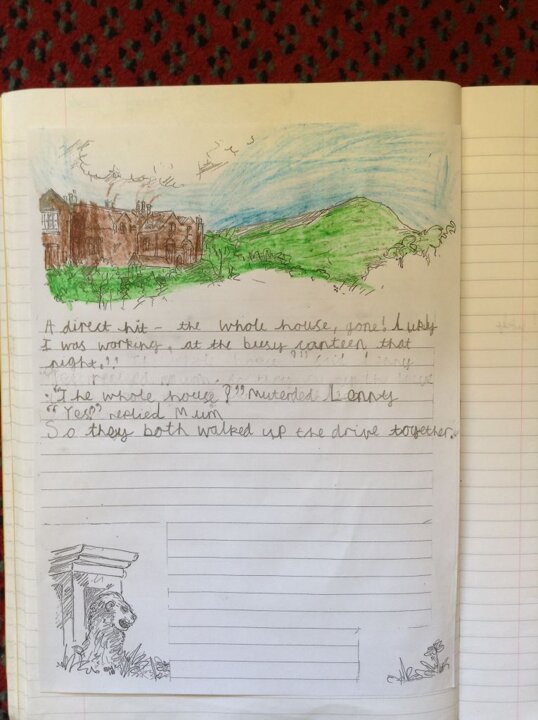 A direct hit - the whole house, gone! Lukly
I was working, at the busy canteen that
night."
"The whole house?" Muterded Lenny
"Yes" replied Mum
So they both walked up the drive together.